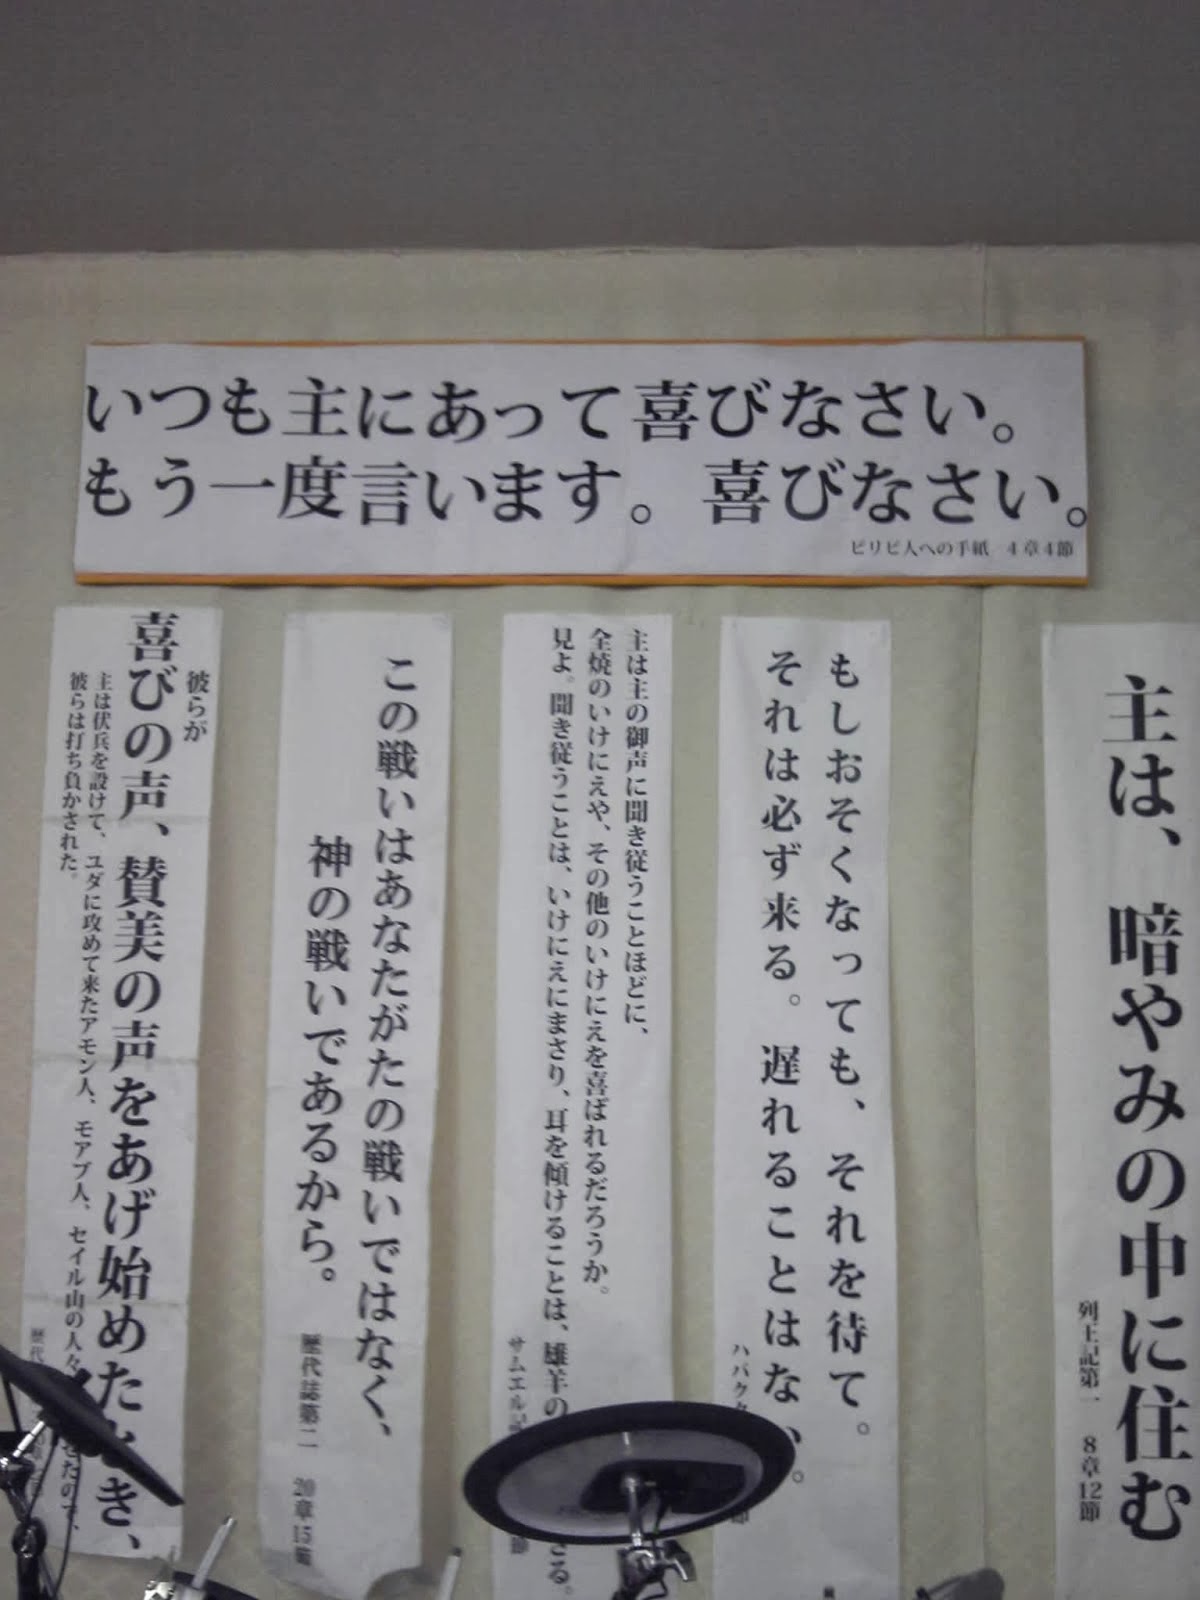 いつも主にあって喜びなさい。
もう一度言います。喜びなさい。
ピリピ人への手紙 4章4節
主は、暗やみの中に住む
列王記第一 8章12節
もしおそくなっても、それを待て。
それは必ず来る。遅れることはな
ハバク
主は主の御声に聞き従うことほどに、
全焼のいけにえや、その他のいけにえを喜ばれるだろうか。
見よ。聞き従うことは、いけにえにまさり、耳を傾けることは、雄羊の
サムエル記
この戦いはあなたがたの戦いではなく、
神の戦いであるから。
歴代誌第二 20章15節
彼らが
喜びの声、賛美の声をあげ始めた き、
主は伏兵を設けて、ユダに攻めて来たアモン人、モアブ人、セイル山の人々 せたので、
彼らは打ち負かされた。
歴代